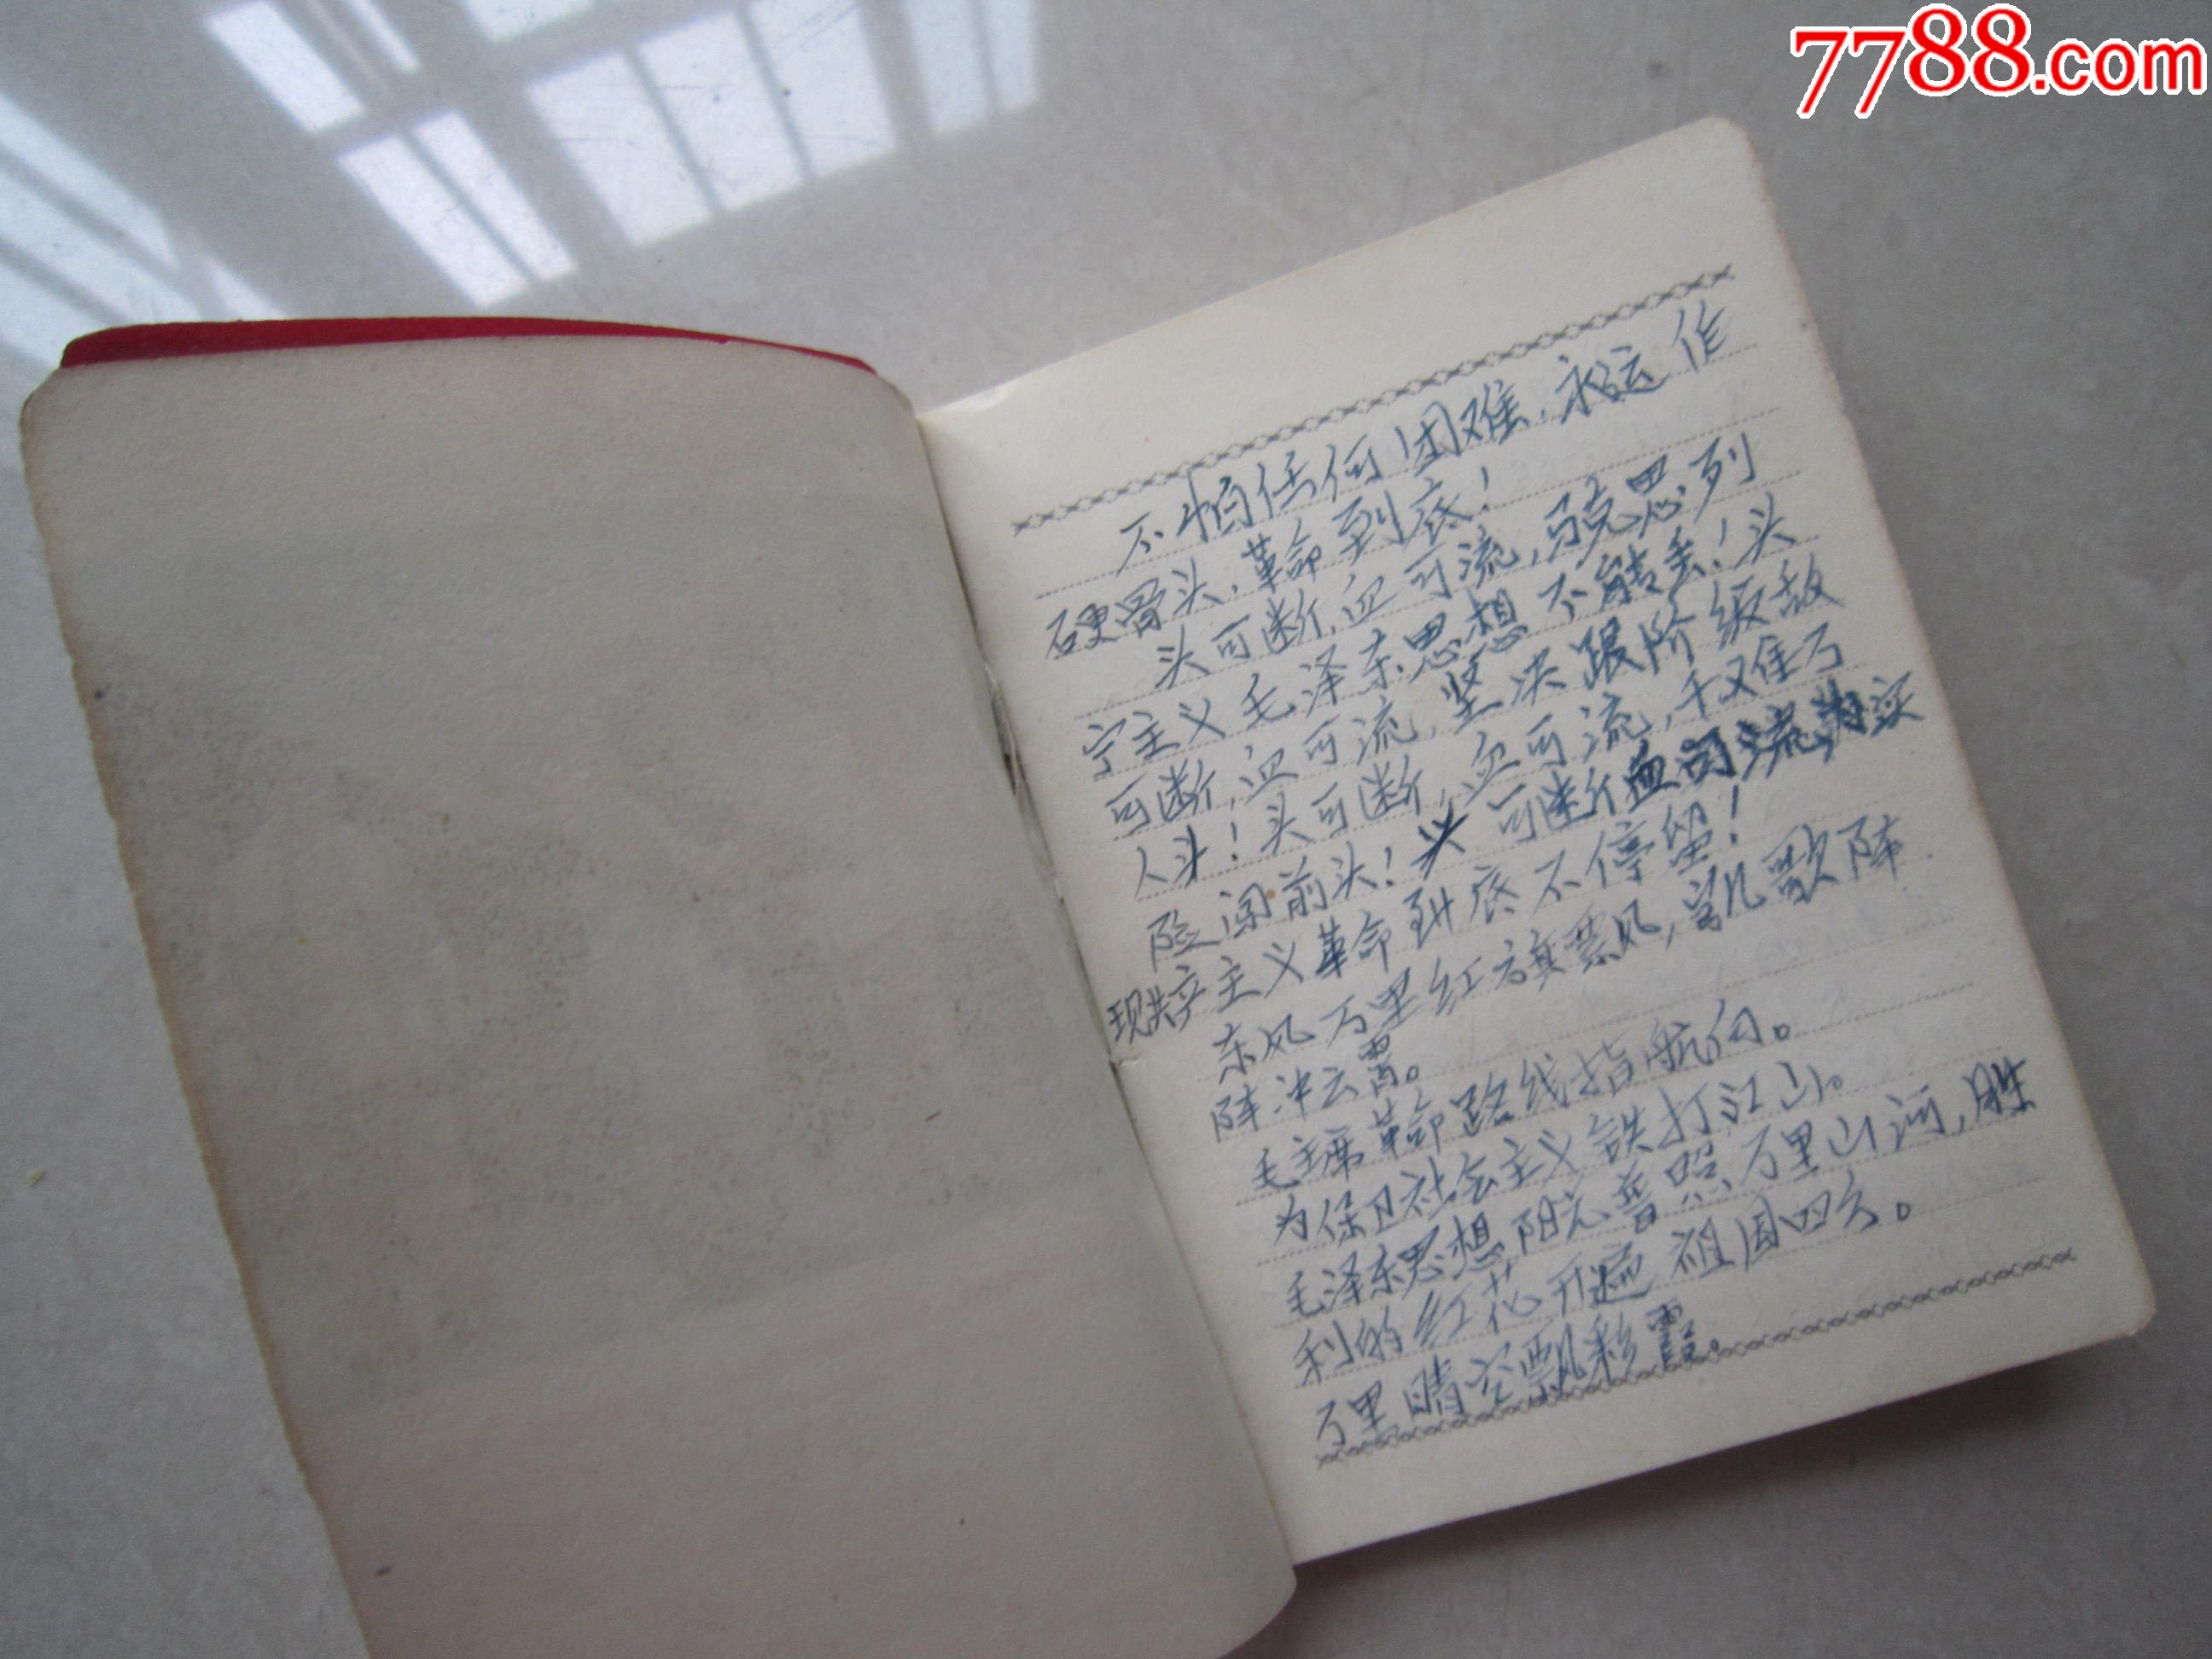 7788.com
不怕任何困难,永远作
硬骨头,革命到底!
头可断,血可流,马克思列
宁主义毛泽东思想不能丢!头
可断,血可流,坚决跟阶级敌
人头!头可断,血可流,千难万
险闯前头!头可断血可流,为实
现共产主义革命到底不停留!
东风万里红旗飘,凯歌阵
阵冲云霄。
毛主席革命路线指航向。
为保卫社会主义铁打江山。
毛泽东思想阳光普照万里山河,胜
利的红花开遍祖国四方。
万里晴空飘彩霞。